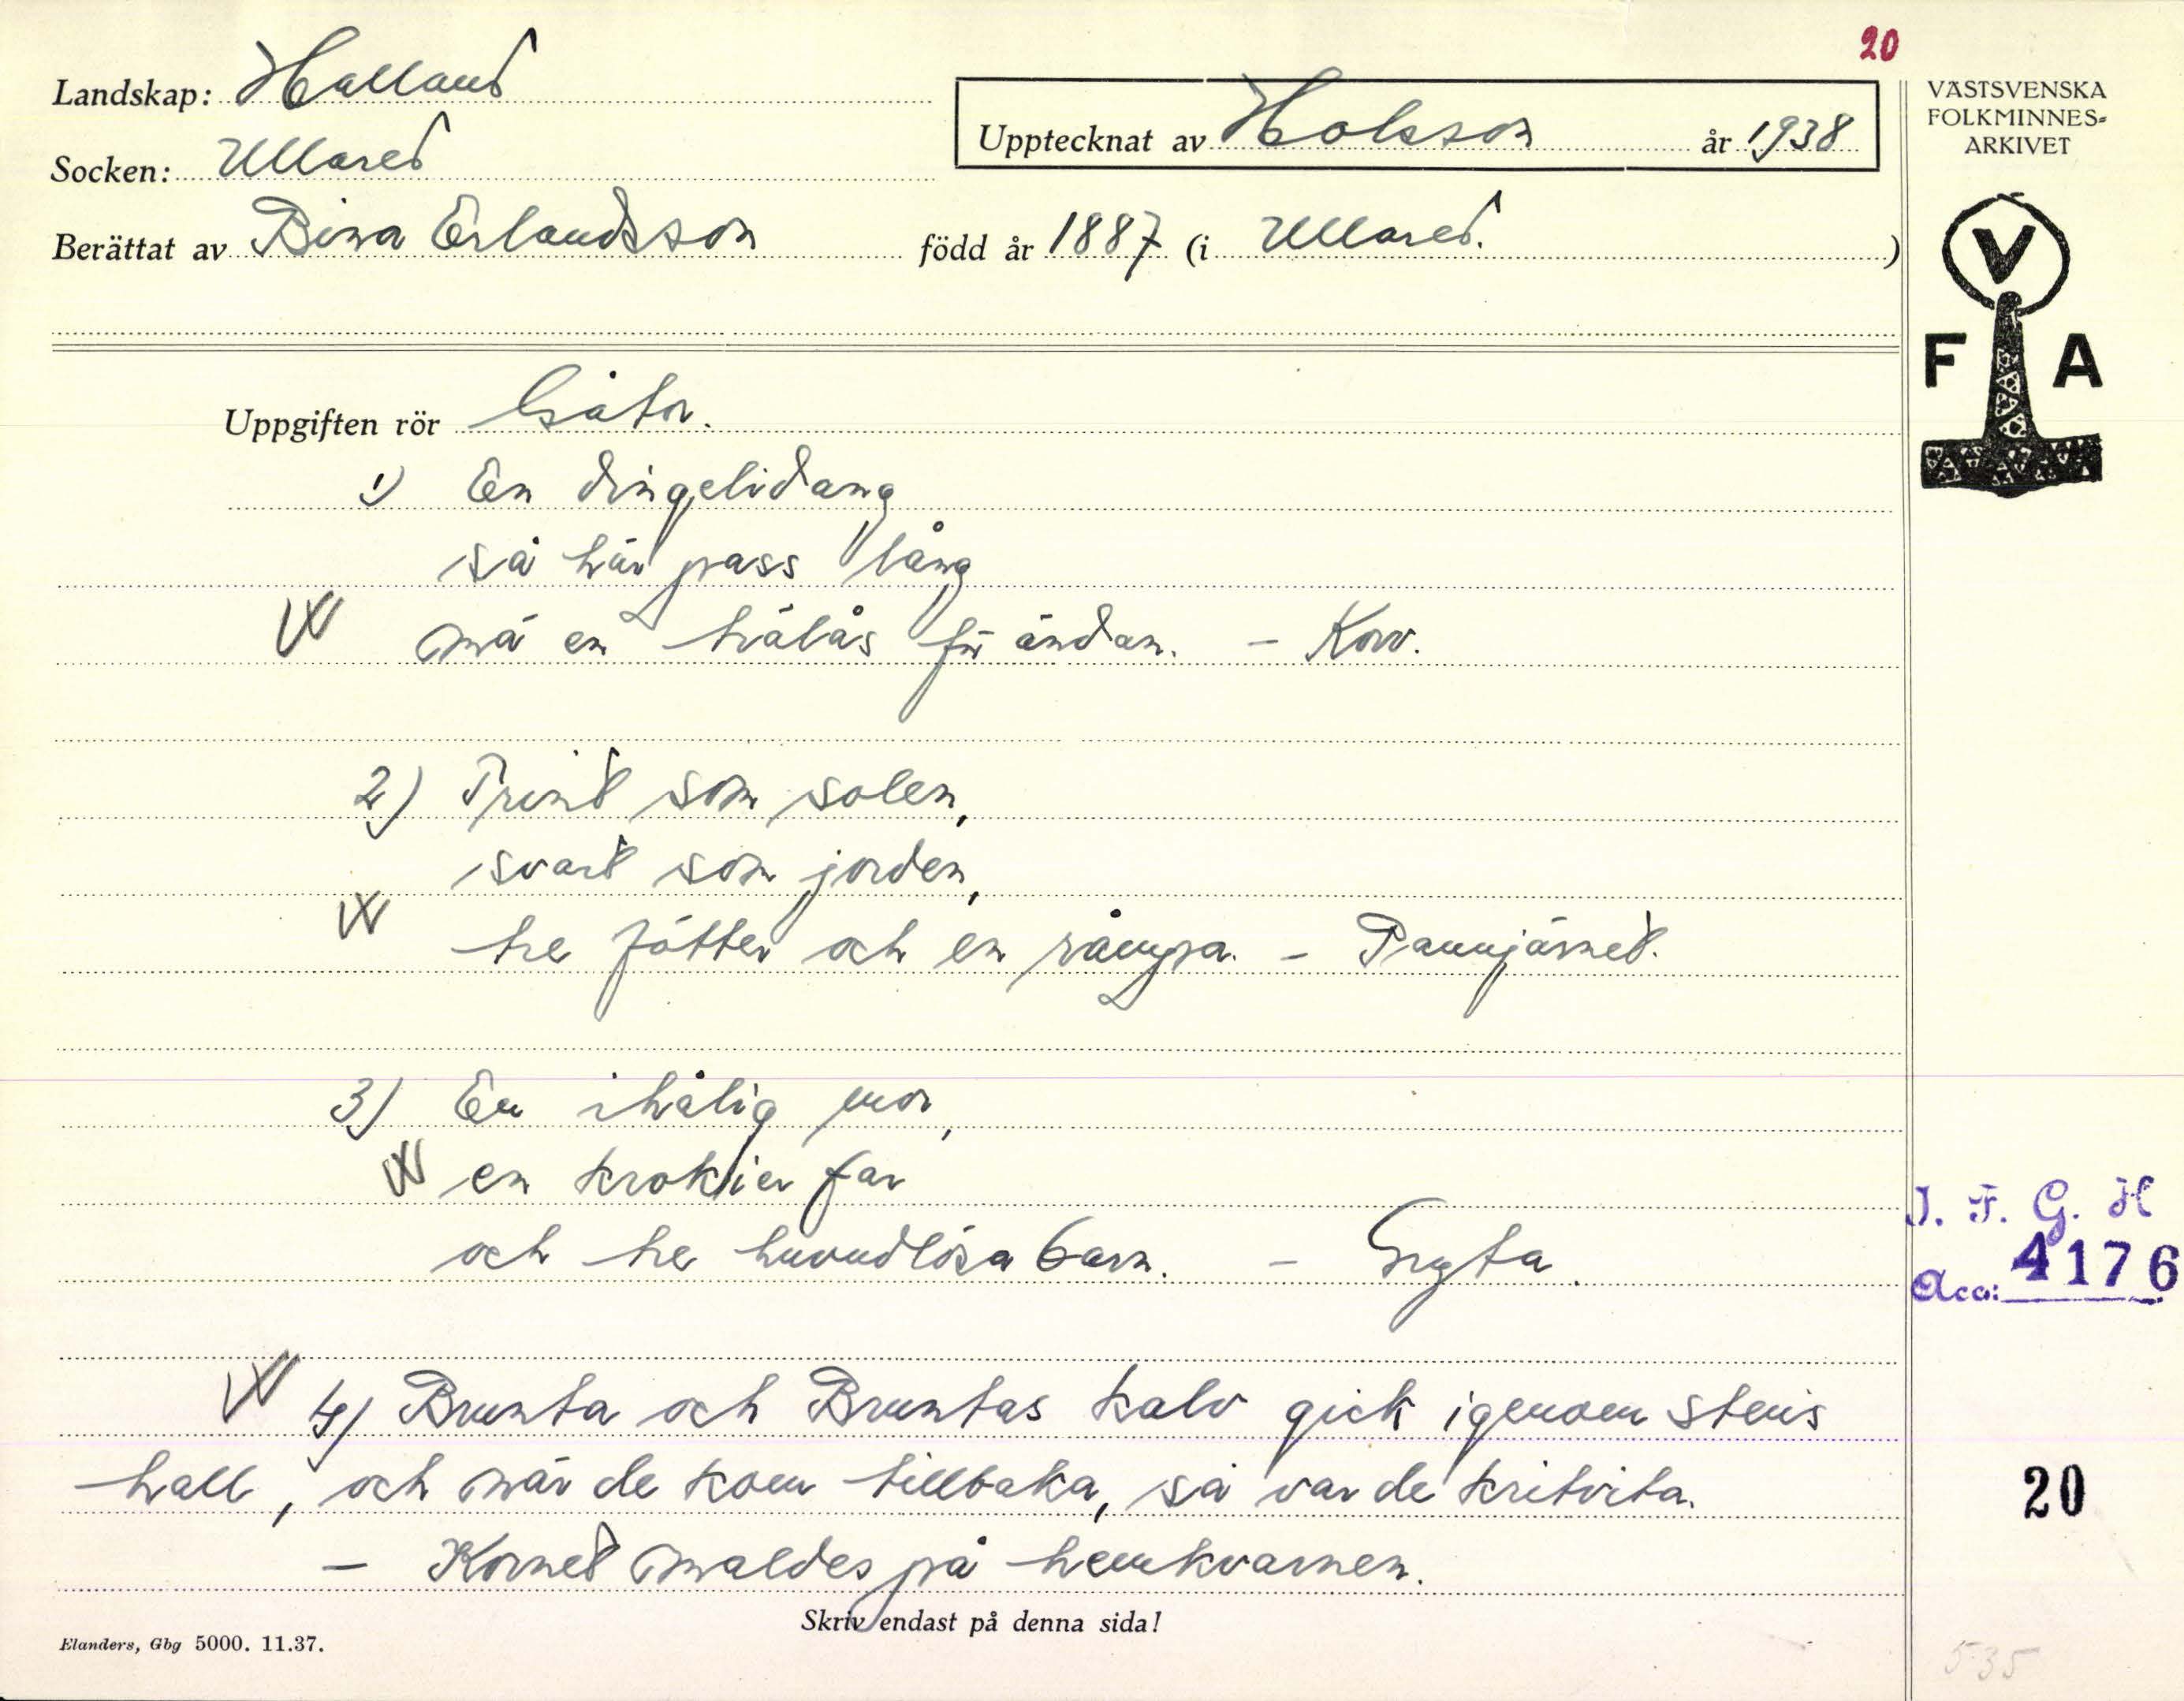 20
Landskap: Halland
Socken: Ullared
Upptecknat av Holsson år 1938
Berättat av Bina Erlandsson född år 1887 (i Ullared.)
VÄSTSVENSKA
FOLKMINNES-
ARKIVET
V
F A
Uppgiften rör Gåtor.
1) En dingelidang
så här pass lång
mä en hålås för ändan. - Korv.
2) Trind som solen,
svart som jorden,
tre fötter och en rångpa. - Pannjärnet.
3) En ihålig mor,
en krokier far
och tre huvudlösa barn. - Gryta.
4) Brunta och Bruntas kalv gick igenom stens
hall, och när de kom tillbaka, så var de kritvita.
- Kornet maldes på hemkvarnen.
J. F. G. H
Acc: 4176
20
Skriv endast på denna sida!
Elanders, Gbg 5000. 11.37.
535